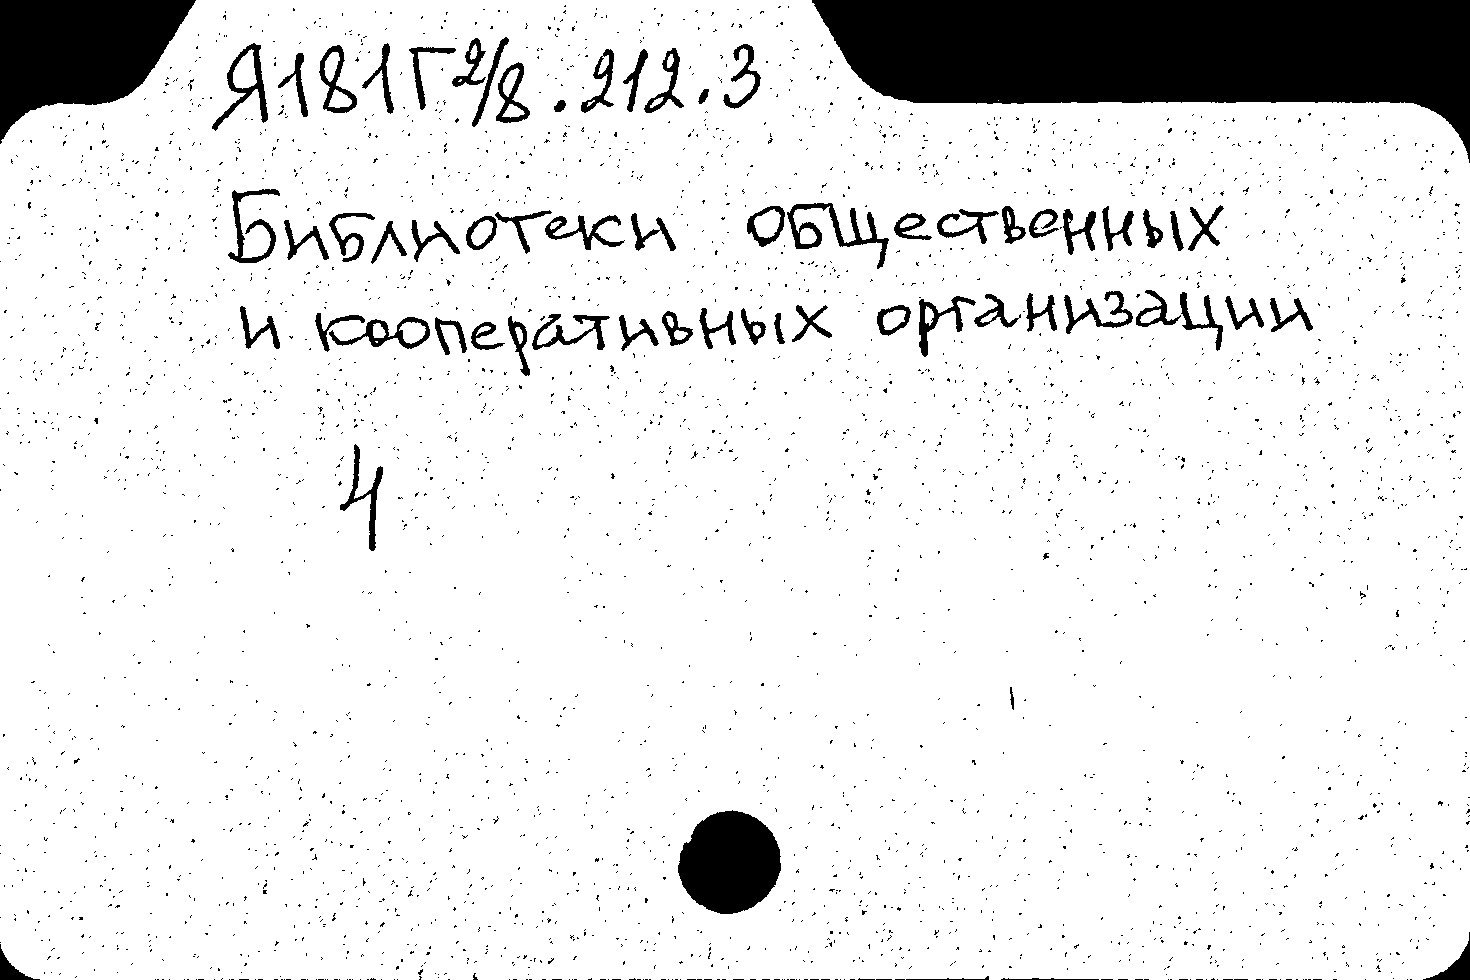 Я181Г2/8.212.3
Библиотеки общественных
и кооперативных организации
4